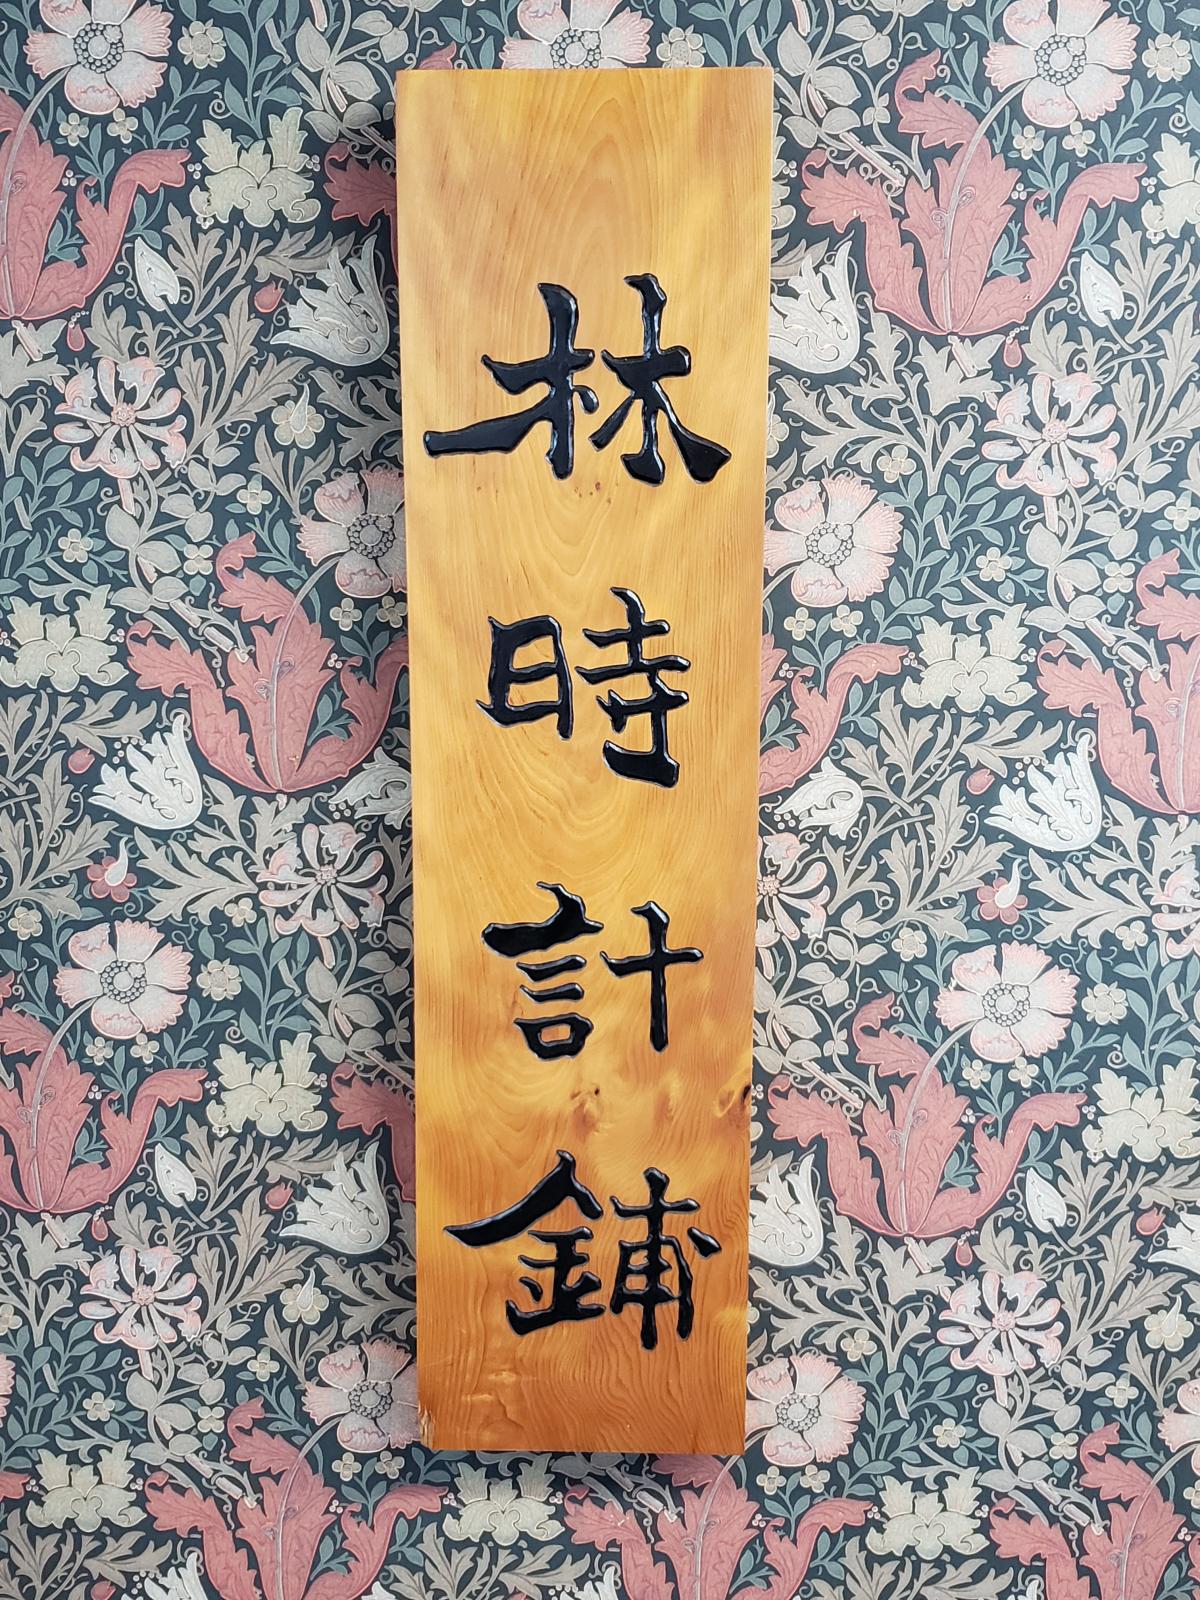 林時計鋪